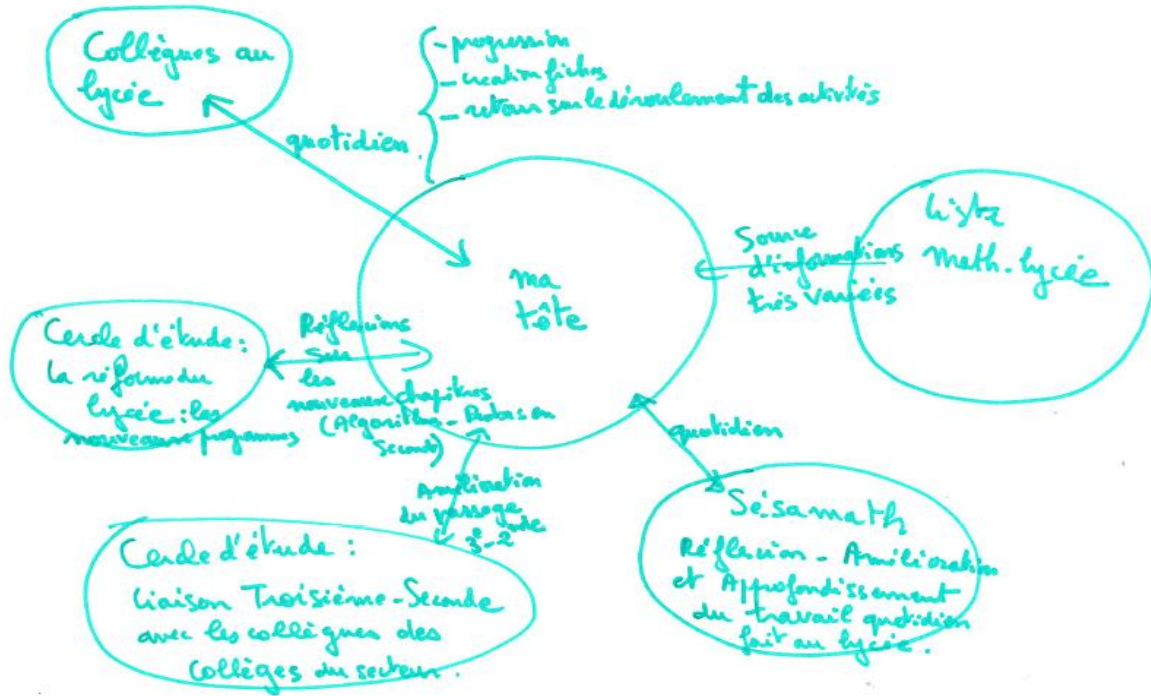 Collègues au
lycée
quotidien
- progression
- création fiches
- retour sur le déroulement des activités
ma
tête
Source
d'informations
très variées
Liste
Math-lycée
Cercle d'étude :
la réforme du
lycée : les
nouveaux programmes
Réflexions
sur
les
nouveaux chapitres
(Algorithme - Probas en
Seconde)
quotidien
Amélioration
du passage
3e - 2nde
Cercle d'étude :
Liaison Troisième - Seconde
avec les collègues des
collèges du secteur.
Sésamath
Réflexion - Amélioration
et Approfondissement
du travail quotidien
fait au lycée.